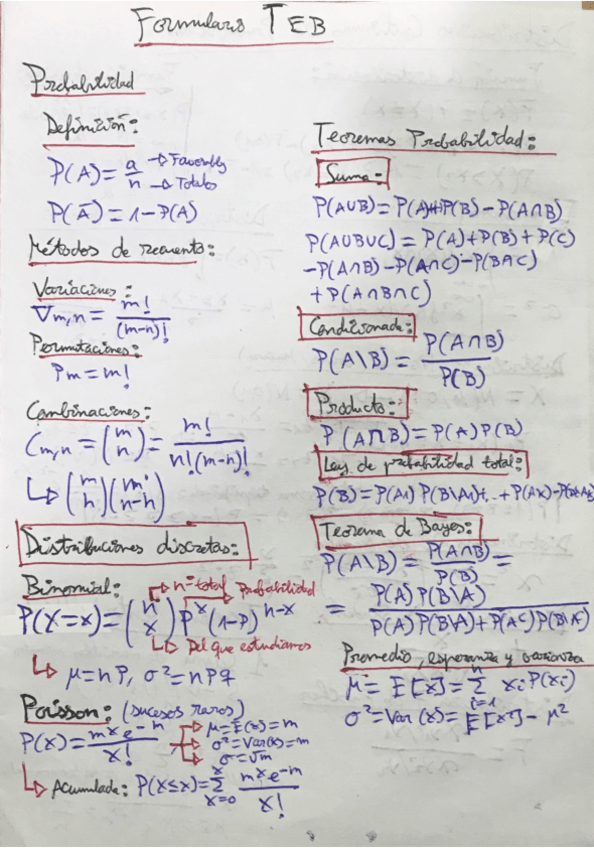 Formulario TEB
Probabilidad
Definición:
P(A) = a/n → Favorables → Totales
P(Ā) = 1 - P(A)
Métodos de recuento:
Variaciones:
Vm,n = m!/(m-n)!
Permutaciones:
Pm = m!
Combinaciones:
Cm,n = (m n) = m!/n!(m-n)!
↳ (m n)(m n-n)
Distribuciones discretas:
Binomial: → nº total → Probabilidad
P(X=x) = (n x) P^x (1-P)^n-x
↳ Del que estudiamos
↳ μ = nP, σ² = nPq
Poisson: (sucesos raros)
P(x) = m^x e^-m / x! → μ = E(x) = m
→ σ² = Var(x) = m
→ σ = √m
↳ Acumulada: P(X≤x) = Σ x=0 x m^x e^-m / x!
Teoremas Probabilidad:
Suma:
P(A∪B) = P(A)+P(B) - P(A∩B)
P(A∪B∪C) = P(A)+P(B)+P(C)
-P(A∩B) - P(A∩C) - P(B∩C)
+P(A∩B∩C)
Condicionada:
P(A\B) = P(A∩B)/P(B)
Producto:
P(A∩B) = P(A)P(B)
Ley de probabilidad total:
P(B) = P(A1) P(B\A1)+..+P(Ak)-P(B\Ak)
Teorema de Bayes:
P(A\B) = P(A∩B)/P(B) =
= P(A)P(B\A)/P(A)P(B\A)+P(AC)P(B\AC)
Promedio, esperanza y varianza
μ = E[x] = Σ i=1 n xi P(xi)
σ² = Var(x) = E[x²] - μ²